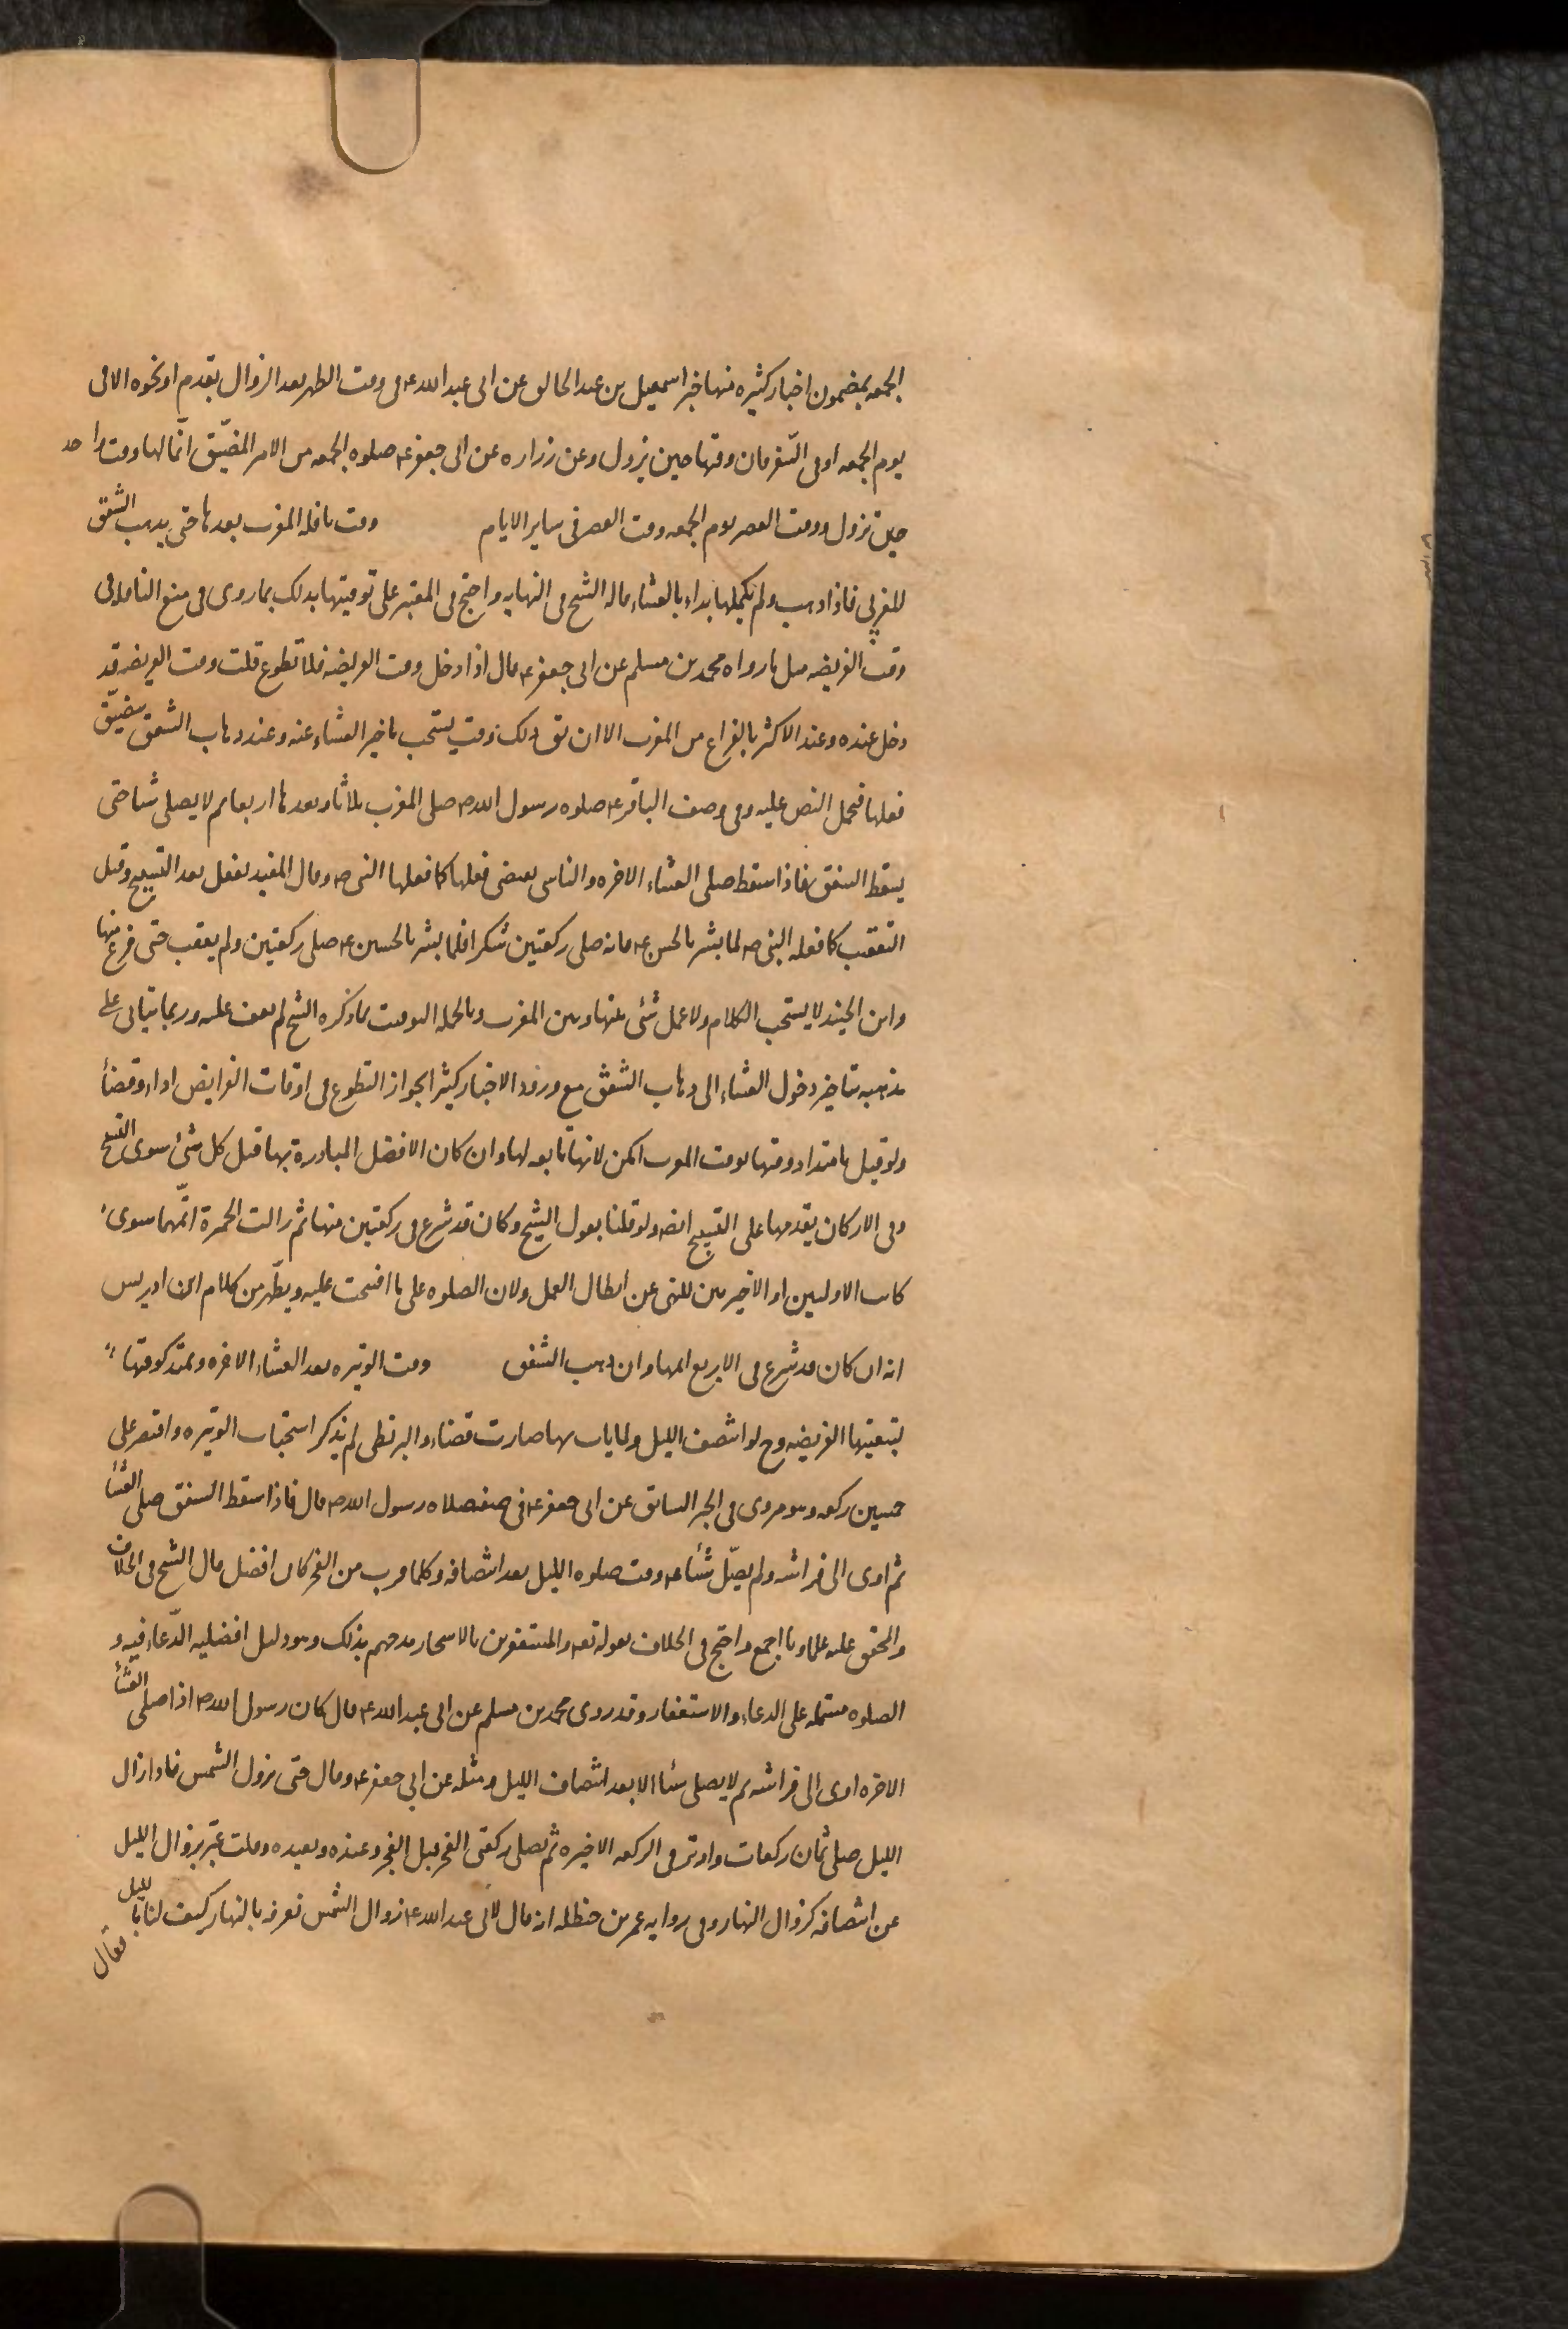 الجمعه بمضمون اخبار كثيره منها خبر اسمعيل بن عبد الخالق عن ابى عبد الله ع فى وقت الظهر بعد الزوال بقدم او نحوه الا فى
يوم الجمعه او فى السّفر فان وقتها حين يزول وعن زراره عن ابى جعفر ع صلوه الجمعه من الامر المضيّق انّما لها وقت واحد
حين تزول ووقت العصر يوم الجمعه وقت العصر فى ساير الايام وقت نافله المغرب بعدها حتى يذهب الشفق
المغربى فاذا ذهب ولم يكملها بداء بالعشاء قاله الشيخ فى النهايه واحتج فى المعتبر على توقيتها بذلك بما روى فى منع النافله فى
وقت الفريضه مثل ما رواه محمد بن مسلم عن ابى جعفر ع قال اذا دخل وقت الفريضه فلا تطوع قلت وقت الفريضه قد
دخل عنده وعند الاكثر بالفراغ من المغرب الا ان يق ذلك وقت يستحب تاخير العشاء عنه وعند ذهاب الشفق يتضيّق
فعلها فحمل النص عليه وفى وصف الباقر ع صلوه رسول الله ص صلى المغرب ثلاثا وبعدها اربعا ثم لا يصلى شيئا حتى
يسقط الشفق فاذا سقط صلى العشاء الاخره والناسى يقضى فعلها كما فعلها النبى ص وقال المفيد يفعل بعد التسبيح وقبل
التعقيب كما فعله النبى ص لما بشر بالحسن ع فانه صلى ركعتين شكرا فلما بشر بالحسين ع صلى ركعتين ولم يعقب حتى فرغ منها
وابن الجنيد لا يستحب الكلام ولا عمل شئ بينها وبين المغرب وبالجمله التوقيت بما ذكره الشيخ لم نقف عليه وربما يتاتى على
مذهبه بتاخير دخول العشاء الى ذهاب الشفق مع ورود الاخبار كثيرا بجواز التطوع فى اوقات الفرايض اداء وقضأ
ولو قيل بامتداد وقتها بوقت المغرب امكن لانها تابعه لها وان كان الافضل المبادرة بها قبل كل شئ سوى التسبيح
وفى الاركان يقدمها على التسبيح ايضه ولو قلنا بقول الشيخ وكان قد شرع فى ركعتين منها ثم زالت الحمرة اتمّهما سوى
كانت الاوليين او الاخيرتين للنهى عن ابطال العمل ولان الصلوه على ما افتتحت عليه ويظهر من كلام ابن ادريس
انه ان كان قد شرع فى الاربع اتمها وان ذهب الشفق وقت الوتيره بعد العشاء الاخره ويمتد كوقتها
بتبعيتها الفريضه وح لو انتصف الليل ولما يات بها صارت قضاء والبزنطى لم يذكر استحباب الوتيره واقتصر على
خمسين ركعه وهو مروى فى الخبر السابق عن ابى جعفر ع فى صفه صلاه رسول الله ص قال فاذا سقط الشفق صلى العشأ
ثم اوى الى فراشه ولم يصلّ شيئا ع وقت صلوه الليل بعد انتصافه وكلما قرب من الفجر كان افضل قال الشيخ فى الخلاف
والمحقق عليه علماونا اجمع واحتج فى الخلاف بقوله تعه والمستغفرين بالاسحار مدحهم بذلك وهو دليل افضليه الدّعاء فيه و
الصلوه مشتمله على الدعاء والاستغفار وقد روى محمد بن مسلم عن ابى عبد الله ع قال كان رسول الله ص اذا صلى العشأ
الاخره اوى الى فراشه ثم لا يصلى شيئا الا بعد انتصاف الليل ومثله عن ابى جعفر ع وقال حتى يزول الشمس فاذا زال
الليل صلى ثمان ركعات واوتر فى الركعه الاخيره ثم يصلى ركعتى الفجر قبل الفجر وعنده وبعيده وقلت عبّر بزوال الليل
عن انتصافه كزوال النهار وفى روايه عمر بن حنظله انه قال لابى عبد الله ع زوال الشمس نعرفه بالنهار كيف لنا بالليل
فقال